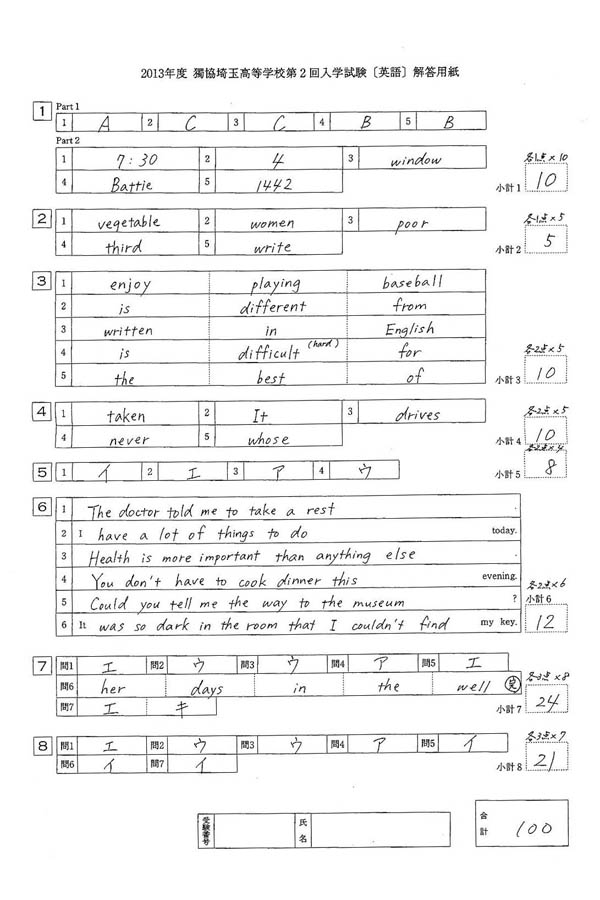 2013年度 獨協埼玉高等学校第2回入学試験〔英語〕解答用紙
1 Part 1
1 A 2 C 3 C 4 B 5 B
Part 2
1 7:30 2 4 3 window 各1点×10
4 Battie 5 1442 小計1 10
2 1 vegetable 2 women 3 poor 各1点×5
4 third 5 write 小計2 5
3 1 enjoy playing baseball
2 is different from
3 written in English
4 is difficult (hard) for 各2点×5
5 the best of 小計3 10
4 1 taken 2 It 3 drives 各2点×5
4 never 5 whose 小計4 10
各2点×4
5 1 イ 2 エ 3 ア 4 ウ 小計5 8
6 1 The doctor told me to take a rest .
2 I have a lot of things to do today.
3 Health is more important than anything else .
4 You don't have to cook dinner this evening. 各2点×6
5 Could you tell me the way to the museum ? 小計6
6 It was so dark in the room that I couldn't find my key. 12
7 問1 エ 問2 ウ 問3 ウ 問4 ア 問5 エ 各3点×8
問6 her days in the well 完
問7 エ キ 小計7 24
8 問1 エ 問2 ウ 問3 ウ 問4 ア 問5 イ 各3点×7
問6 イ 問7 イ 小計8 21
受験番号 氏名 合計 100